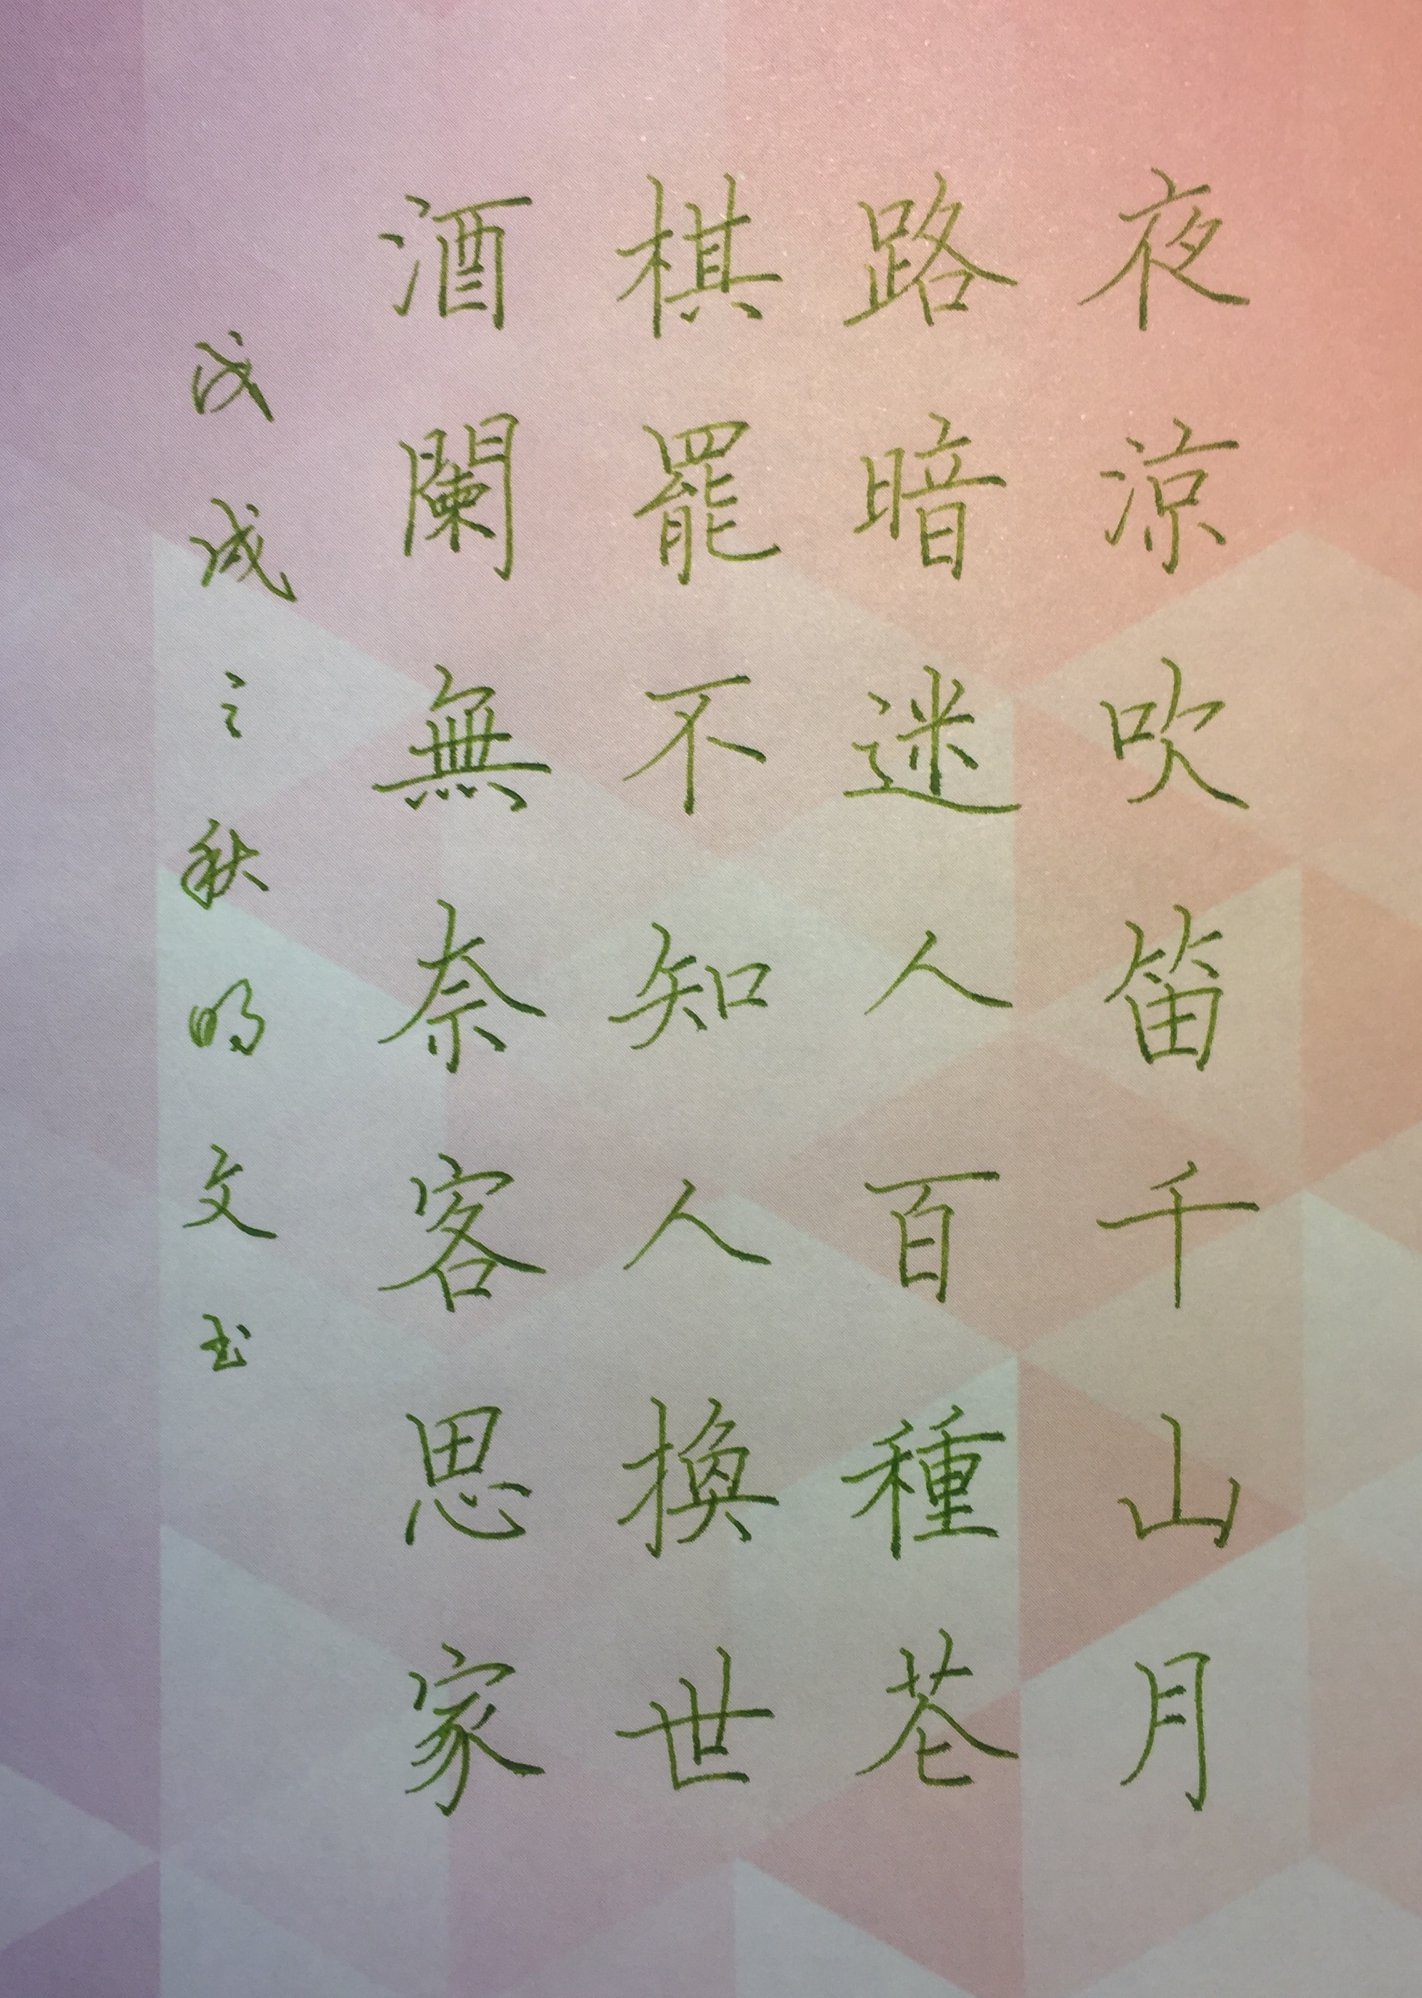 夜涼吹笛千山月
路暗迷人百種花
棋罷不知人換世
酒闌無奈客思家
戊戌之秋明文书